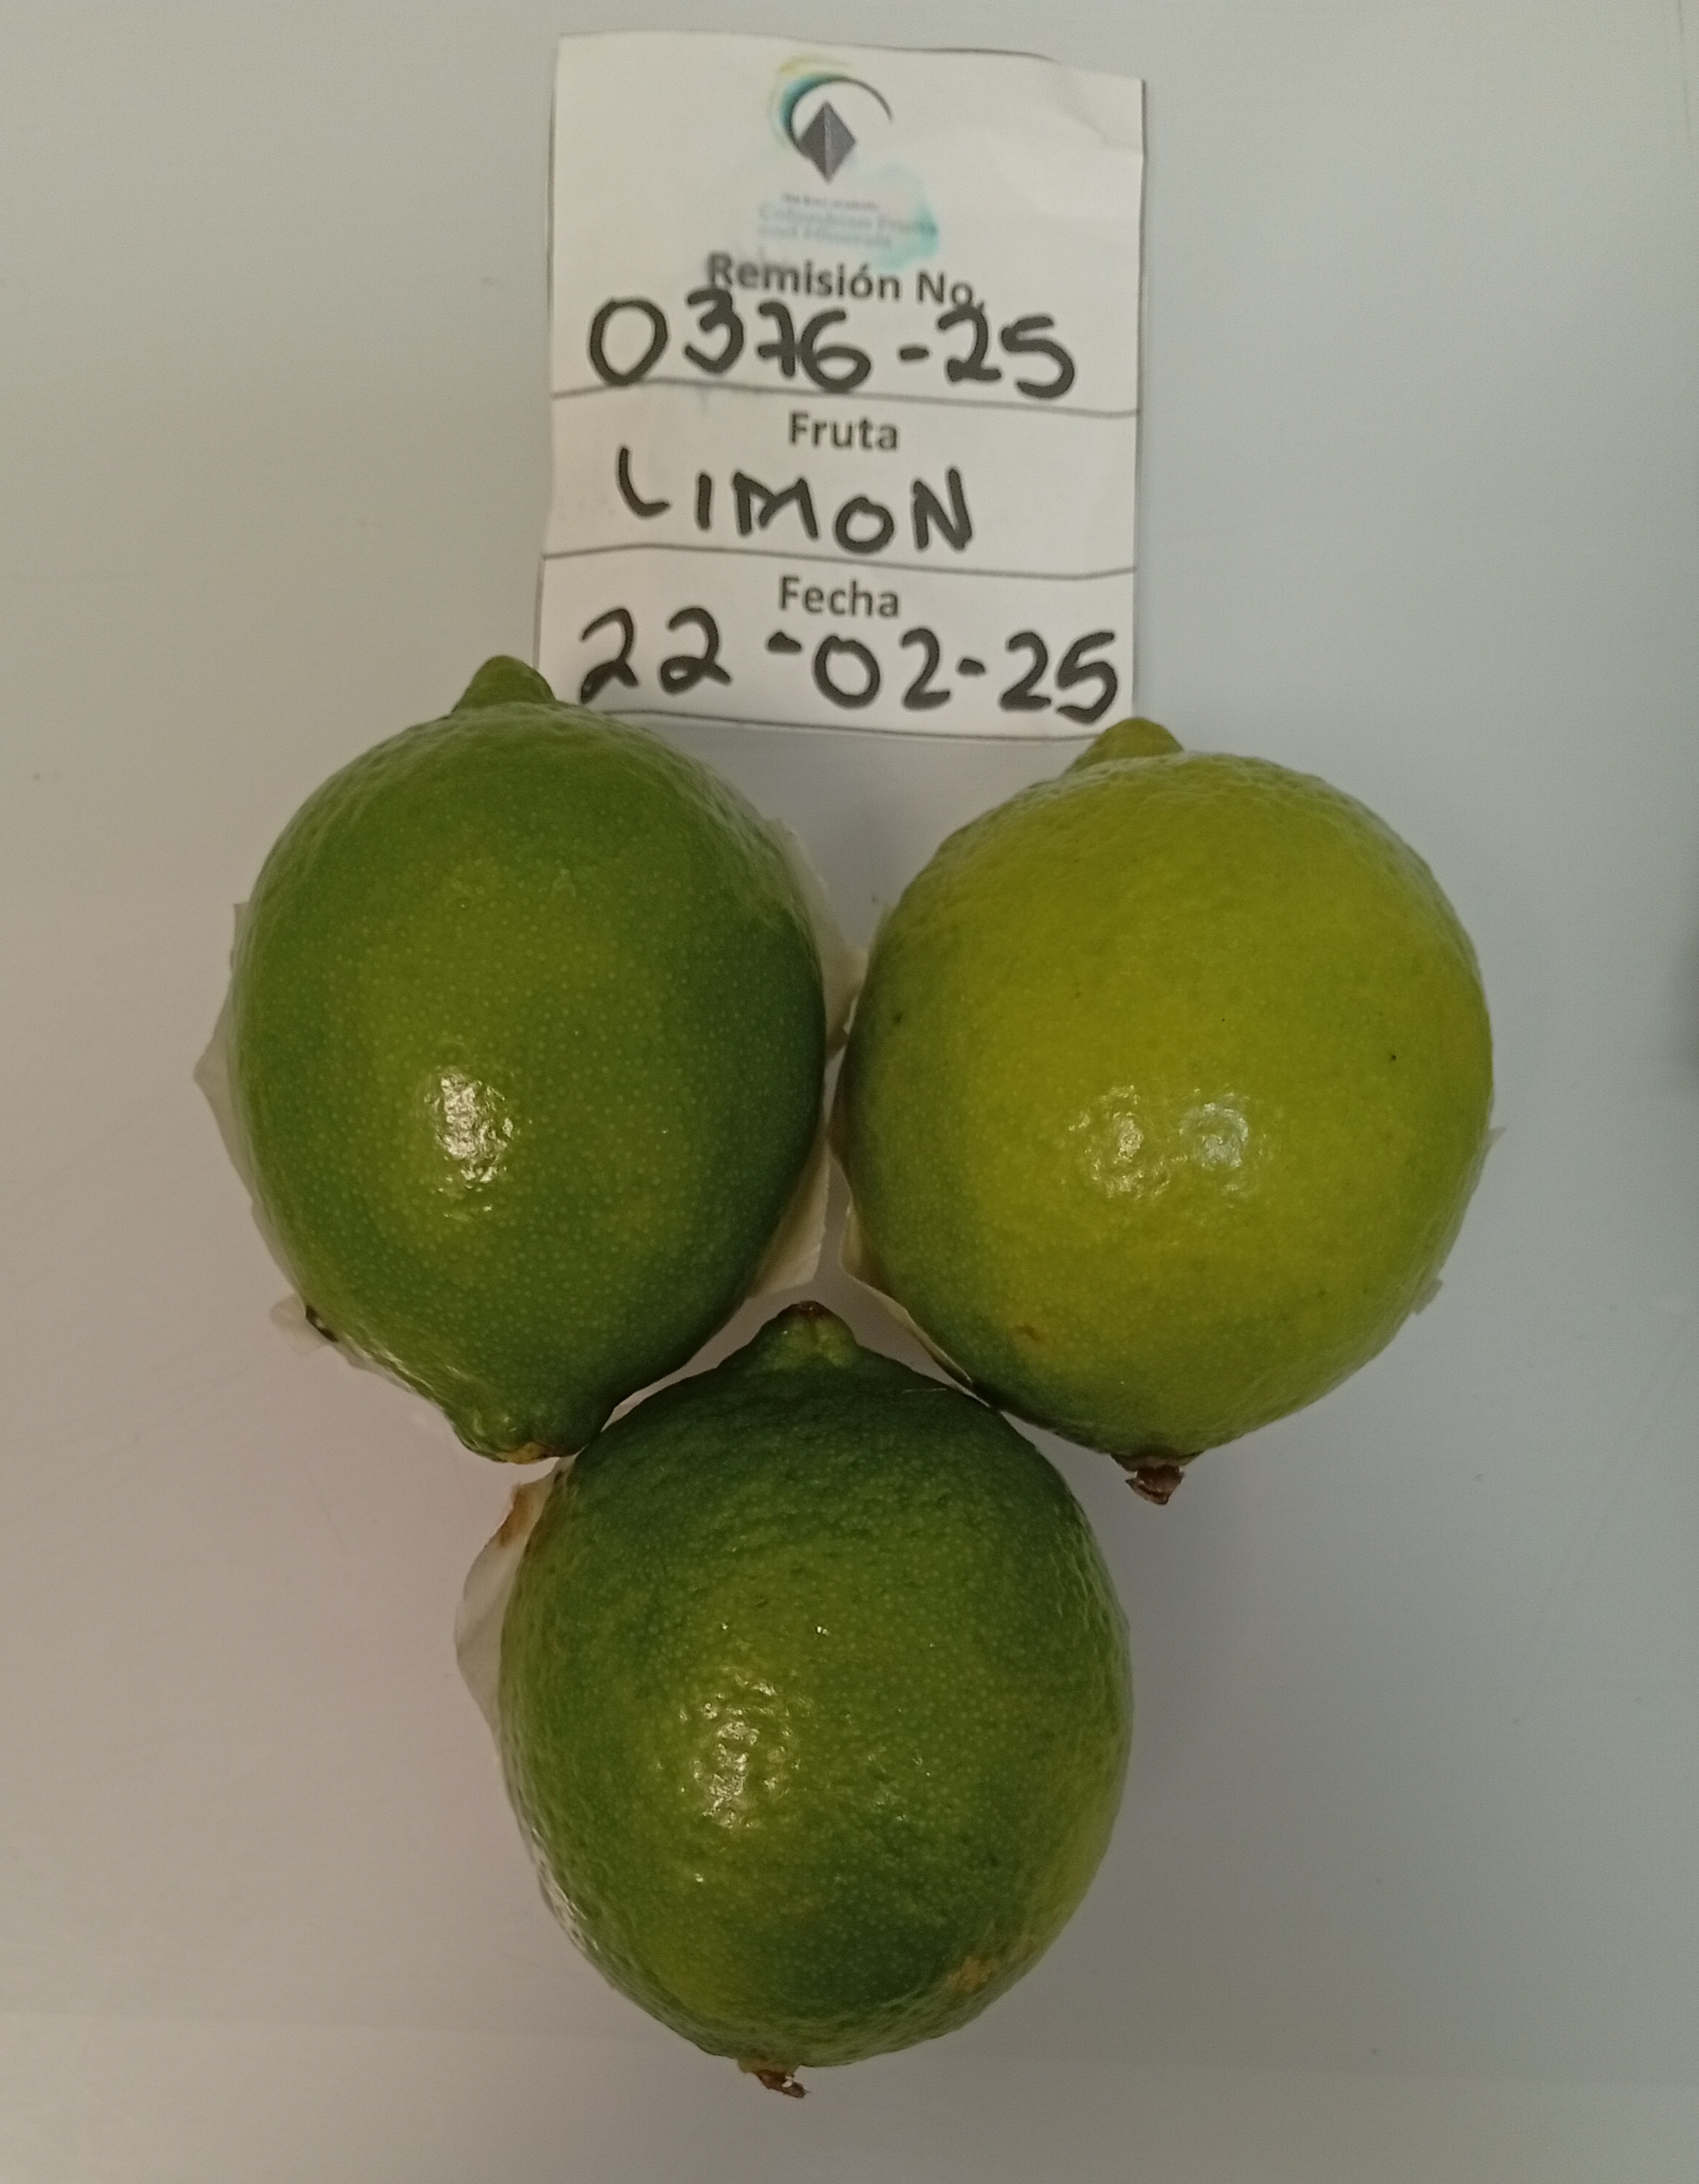 Colombian Fruits
and Minerals
Remisión No.
0376-25
Fruta
LIMON
Fecha
22-02-25